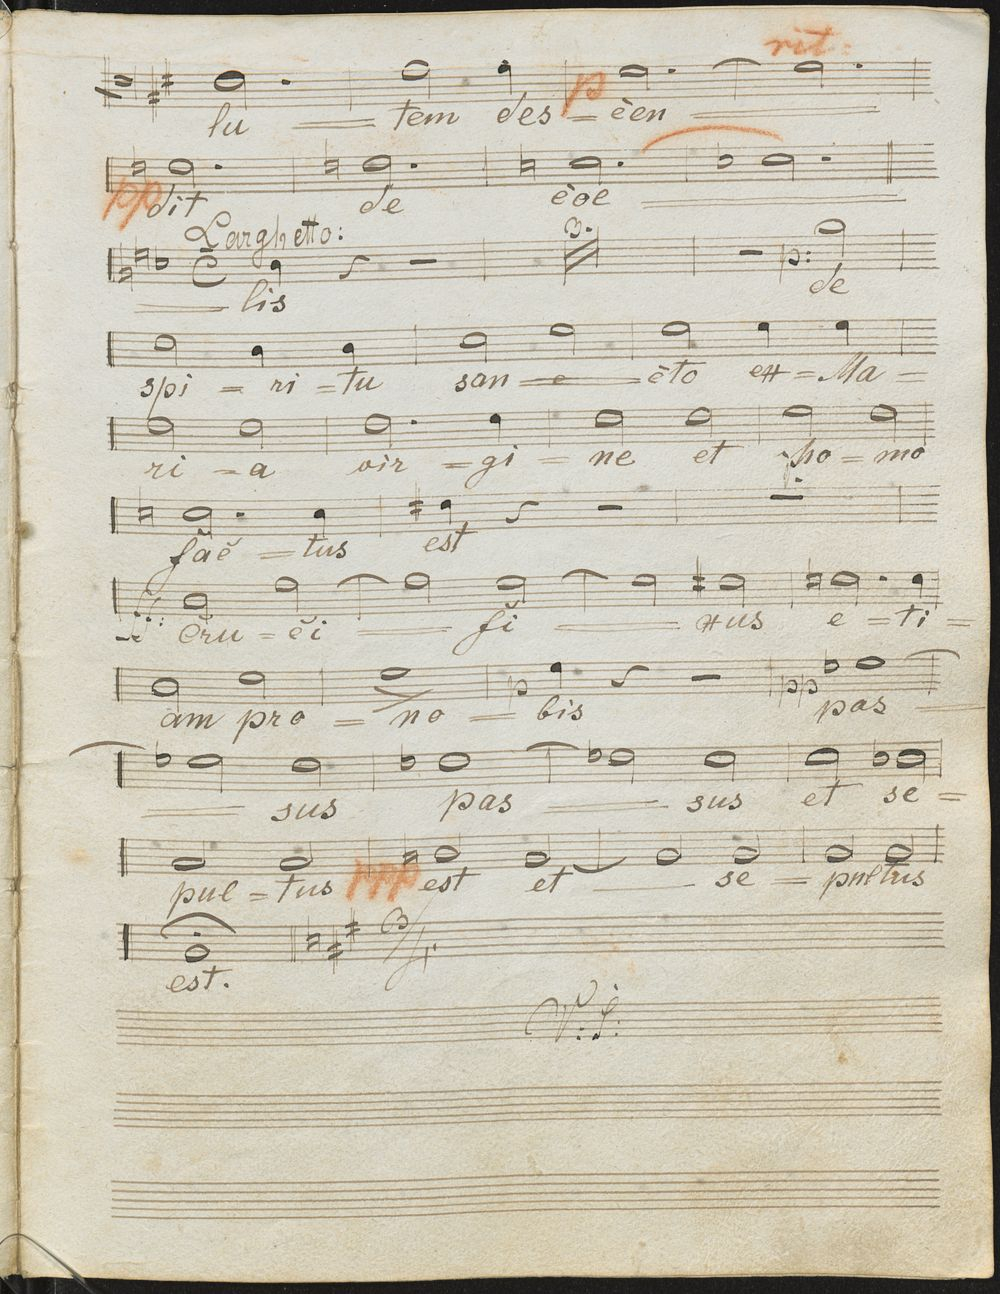 rit:
p
lu — tem des = èen
pp dit de èoe
Larghetto:
3.
p:
lis de
spi = ri = tu san = e = èto ex = Ma =
ri = a vir = gi = ne et ho = mo
fač = tus est
eru = či fi xus e = ti =
am pro = no = bis pp pas
p
sus pas sus et se =
pul = tus ppp est et se = pultus
3/4
est.
V: S: